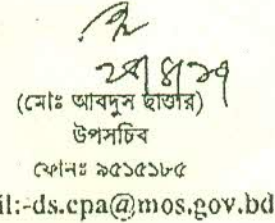 ২৭/৪/১৭
(মোঃ আবদুস ছাত্তার)
উপসচিব
ফোনঃ ৯৫১৫১৮৫
il:-ds.cpa@mos.gov.bd